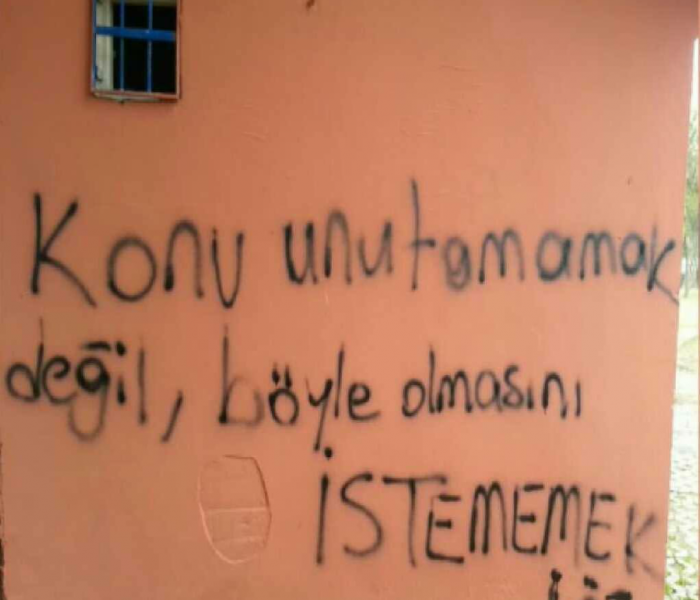 Konu unutamamak
değil, böyle olmasını
İSTEMEMEK